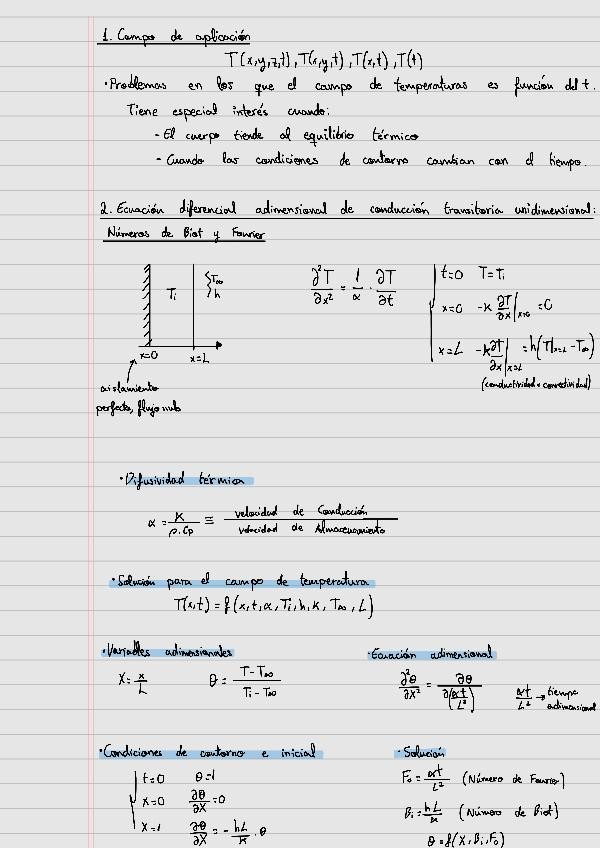 1. Campo de aplicación
T(x,y,z,t), T(x,y,t), T(x,t), T(t)
·Problemas en los que el campo de temperaturas es función del t.
Tiene especial interés cuando:
- El cuerpo tiende al equilibrio térmico
- Cuando las condiciones de contorno cambian con el tiempo.
2. Ecuación diferencial adimensional de conducción transitoria unidimensional:
Números de Biot y Fourier
Ti
T∞
h
x=0 x=L
aislamiento
perfecto, flujo nulo
∂²T/∂x² = 1/α · ∂T/∂t
t=0 T=Ti
x=0 -K ∂T/∂x|x=0 =0
x=L -K ∂T/∂x|x=L = h(T|x=L - T∞)
(conductividad = convectividad)
·Difusividad térmica
α = K/ρ.Cp ≡ velocidad de Conducción / velocidad de Almacenamiento
·Solución para el campo de temperatura
T(x,t) = f(x,t,α,Ti,h,K,T∞,L)
·Variables adimensionales
X = x/L θ = T-T∞/Ti-T∞
·Ecuación adimensional
∂²θ/∂X² = ∂θ/∂(αt/L²) αt/L² → tiempo adimensional
·Condiciones de contorno e inicial
t=0 θ=1
X=0 ∂θ/∂X=0
X=1 ∂θ/∂X = - hL/K . θ
·Solución
Fo = αt/L² (Número de Fourier)
Bi = hL/K (Número de Biot)
θ = f(X, Bi, Fo)